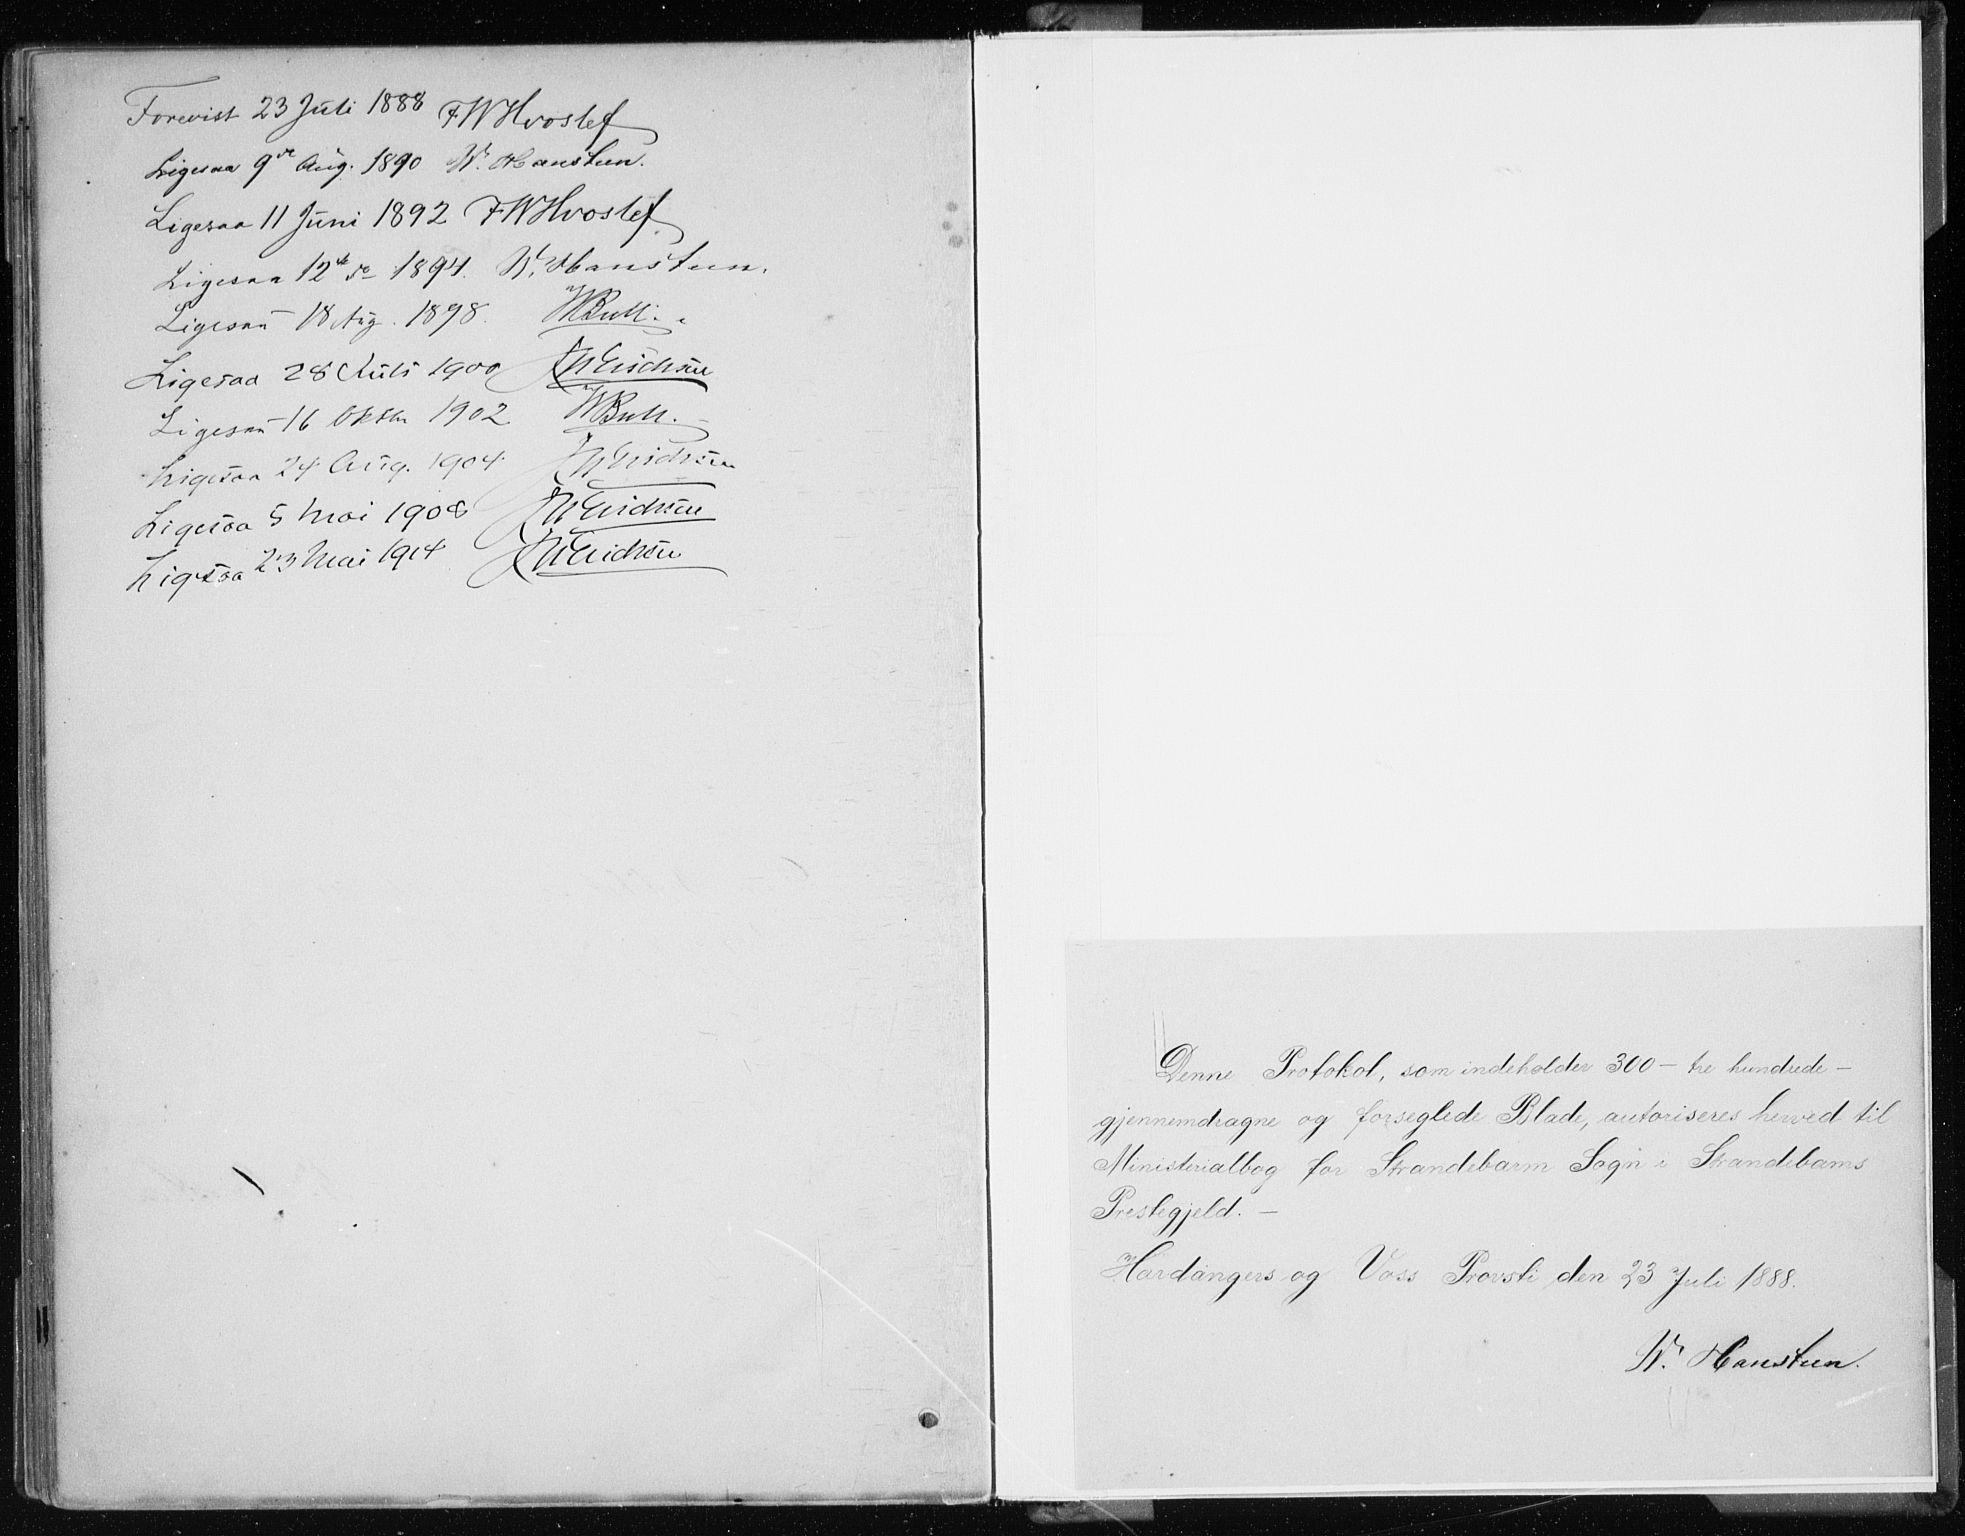 Forevist 23 Juli 1888 FWHvoslef
Ligesaa 9de Aug. 1890 W. Hansteen.
Ligesaa 11 Juni 1892 FWHvoslef
Ligesaa 12te do 1894. W. Hansteen.
Ligesaa 18 Aug. 1898. Bull.
Ligesaa 28 Juli 1900 Erichsen
Ligesaa 16 Oktbr 1902 Bull.
Ligesaa 24 Aug. 1904 Erichsen
Ligesaa 5 Mai 1908 Erichsen
Ligesaa 23 Mai 1914 Erichsen
Denne Protokol, som indeholder 300 — tre hundrede —
gjennemdragne og forseglede Blade, autoriseres herved til
Ministerialbog for Strandebarm Sogn i Strandebarms
Prestegjeld. —
Hardangers og Voss Provsti den 23 Juli 1888.
W. Hansteen.